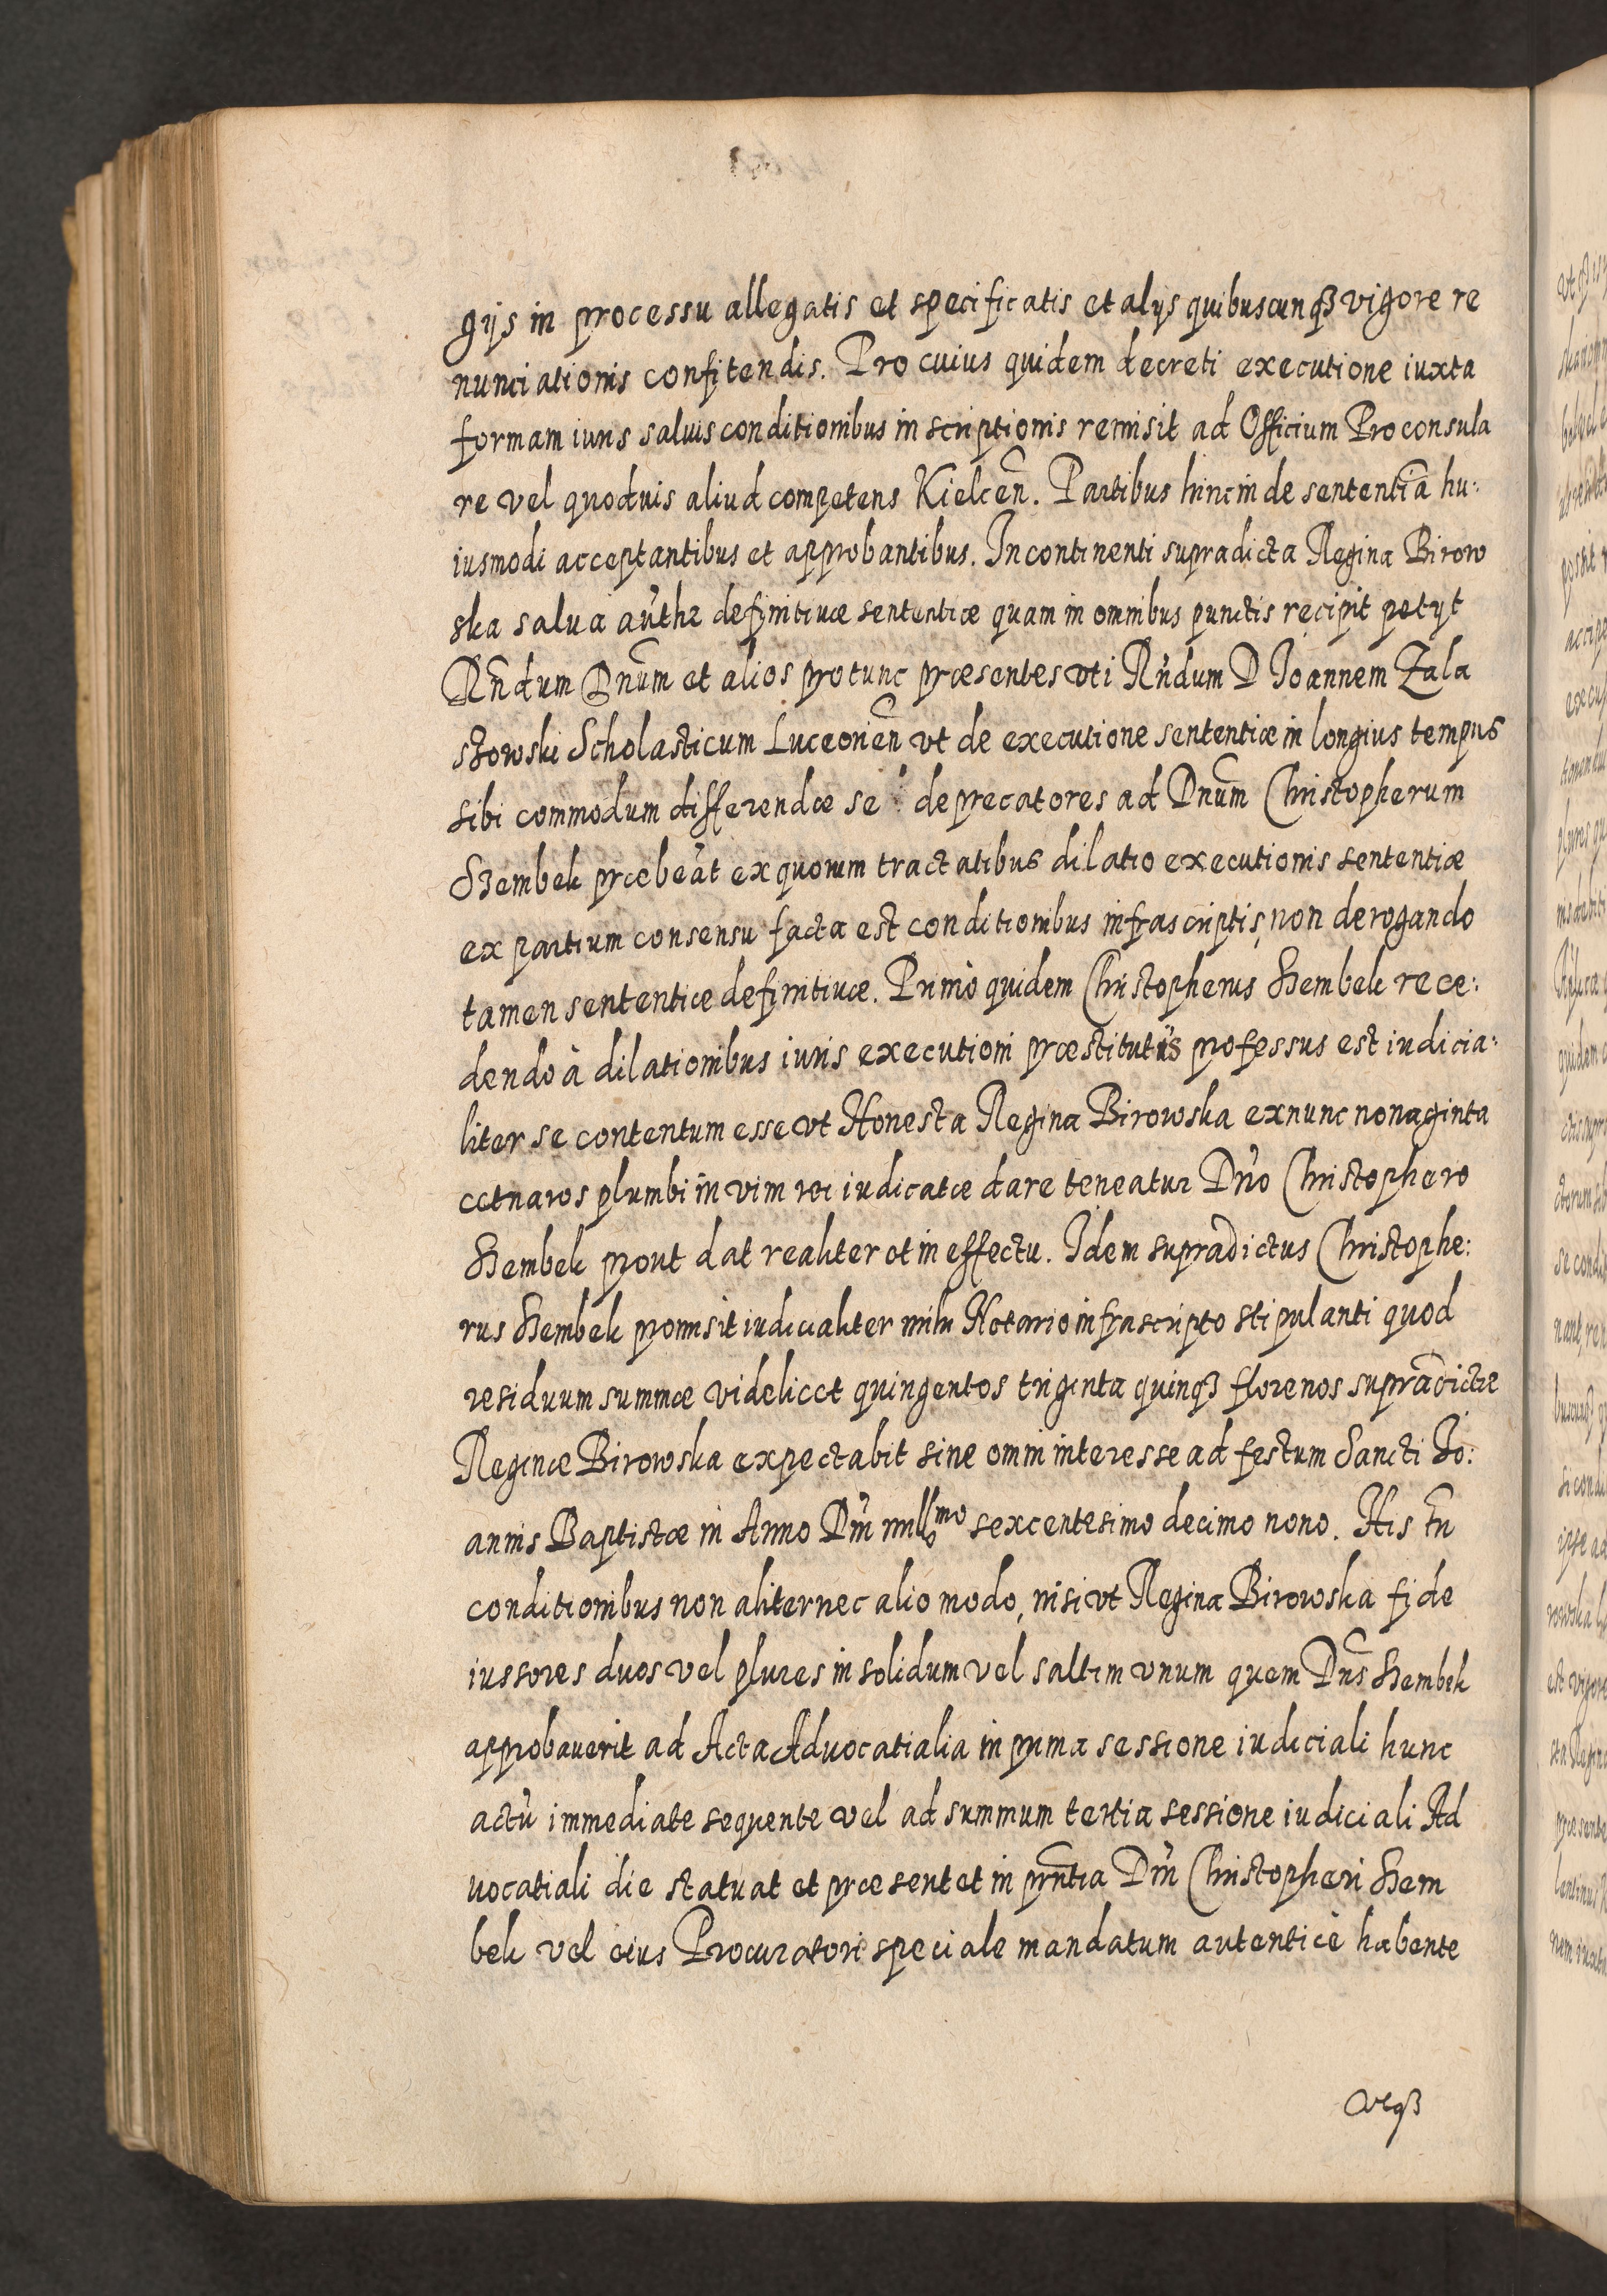 gijs in processu allegatis et specificatis et alijs quibuscunqꝫ vigore re
nunciationis confitendis. Pro cuius quidem decreti executione iuxta
formam iuris saluis conditionibus inscriptionis remisit ad Officium Proconsula
re vel quoduis aliud competens Kielceñ. Partibus hinc inde sententiã hu:
iusmodi acceptantibus et approbantibus. Incontinenti supradicta Regina Birow
ska salua auth definitiuæ sententiæ quam in omnibus punctis recipit petijt
Rñdum Dnũm et alios protunc præsentes vti Rñdum D Ioannem Zala
szowski Scholasticum Luceorieñ vt de executione sententiæ in longius tempus
sibi commodum differendæ se deprecatores ad Dnũm Christopherum
Szembek præbeãt ex quorum tractatibus dilatio executionis sententiæ
ex partium consensu facta est conditionibus infrascriptis, non derogando
tamen sententiæ definitiuæ. Primò quidem Christopherus Szembek rece:
dendo à dilationibus iuris executioni præstitutis professus est iudicia:
liter se contentum esse vt Honesta Regina Birowska exnunc nonaginta
cetnaros plumbi in vim rei iudicatæ dare teneatur Dño Christophero
Szembek prout dat realiter et in effectu. Idem supradictus Christophe:
rus Szembek promisit iudicialiter mihi Notario infrascripto stipulanti quod
residuum summæ videlicet quingentos triginta quinqꝫ florenos supradictæ
Reginæ Birowska expectabit sine omni interesse ad festum Sancti Io:
annis Baptistæ in Anno Dñi millᵐᵒ sexcentesimo decimo nono. His tñ
conditionibus non aliter nec alio modo, nisi vt Regina Birowska fide
iussores duos vel plures in solidum vel saltim vnum quem Dñs Szembek
approbauerit ad Acta Aduocatialia in prima sessione iudiciali hunc
actũ immediate sequente vel ad summum tertia sessione iudiciali Ad
uocatiali die statuat et præsentet in prñtia Dñi Christopheri Szem
bek vel eius Procuratori speciale mandatum autenticè habente